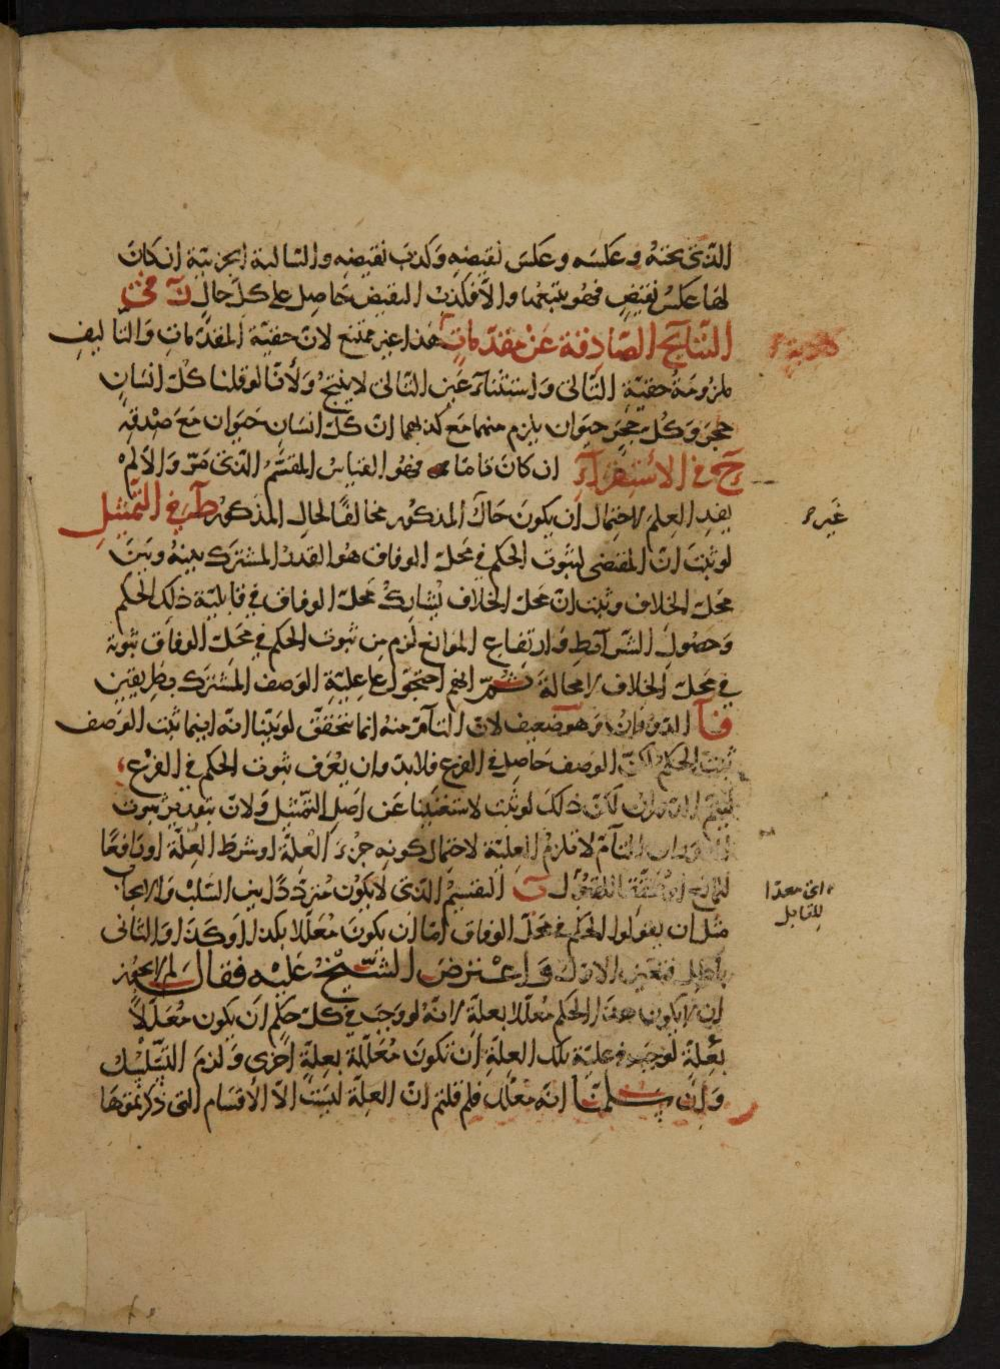 الذى تحته وعكسه وعكس نقيضه وكذب نقيضه والسالبة الجزئية ان كان
لها عكس نقيض فهو يتبعها والا فكذب النقيض حاصل على كل حال ك فى
النتايج الصادقة عن مقدمات هذا غير ممتنع لان حقية المقدمات والتاليف
كاذبة
ملزومة حقية التالى واستثناء عين التالى لا ينتج ولانا لو قلنا كل انسان
حجر وكل حجر حيوان يلزم منهما مع كذبهما ان كل انسان حيوان مع صدقه
ح فى الاستقراء ان كان تاما فهو القياس المقسم الذى مر والا لم
يفد العلم لاحتمال ان يكون حال المذكور مخالفا لحال المذكور ط فى التمثيل
غير
لو ثبت ان المقتضى لثبوت الحكم فى محل الوفاق هو القدر المشترك بينه وبين
محل الخلاف وثبت ان محل الخلاف يشارك محل الوفاق فى قابلية ذلك الحكم
وحصول الشرايط وارتفاع الموانع لزم من ثبوت الحكم فى محل الوفاق ثبوته
فى محل الخلاف لا محالة ثم انهم احتجوا على علية الوصف المشترك بطريقين
فآ الدوران وهو ضعيف لان التام منه انما يتحقق لو بينا انه اينما ثبت الوصف
ثبت الحكم لكن الوصف حاصل فى الفرع فلا بد وان يعرف ثبوت الحكم فى الفرع
ليتم الدوران لكن ذلك لو ثبت لاستغنينا عن اصل التمثيل ولان بتقدير ثبوت
الدوران التام لا تلزم العلية لاحتمال كونه جزء العلة او شرط العلة او دافعا
ب التقسيم الذى لا يكون مترددا بين السلب والايجاب
اعنى معدا
للقابل
مثل ان يقولوا الحكم فى محل الوفاق اما ان يكون معللا بكذا او كذا والثانى
باطل فتعين الاول واعترض الشيخ عليه فقال لم لا يجوز
ان لا يكون هذا الحكم معللا بعلة لانه لو وجب فى كل حكم ان يكون معللا
بعلة لوجب فى علية تلك العلة ان تكون معللة بعلة اخرى ولزم التسلسل
وان سلمنا انه معلل فلم قلتم ان العلة ليست الا الاقسام التى ذكرتموها